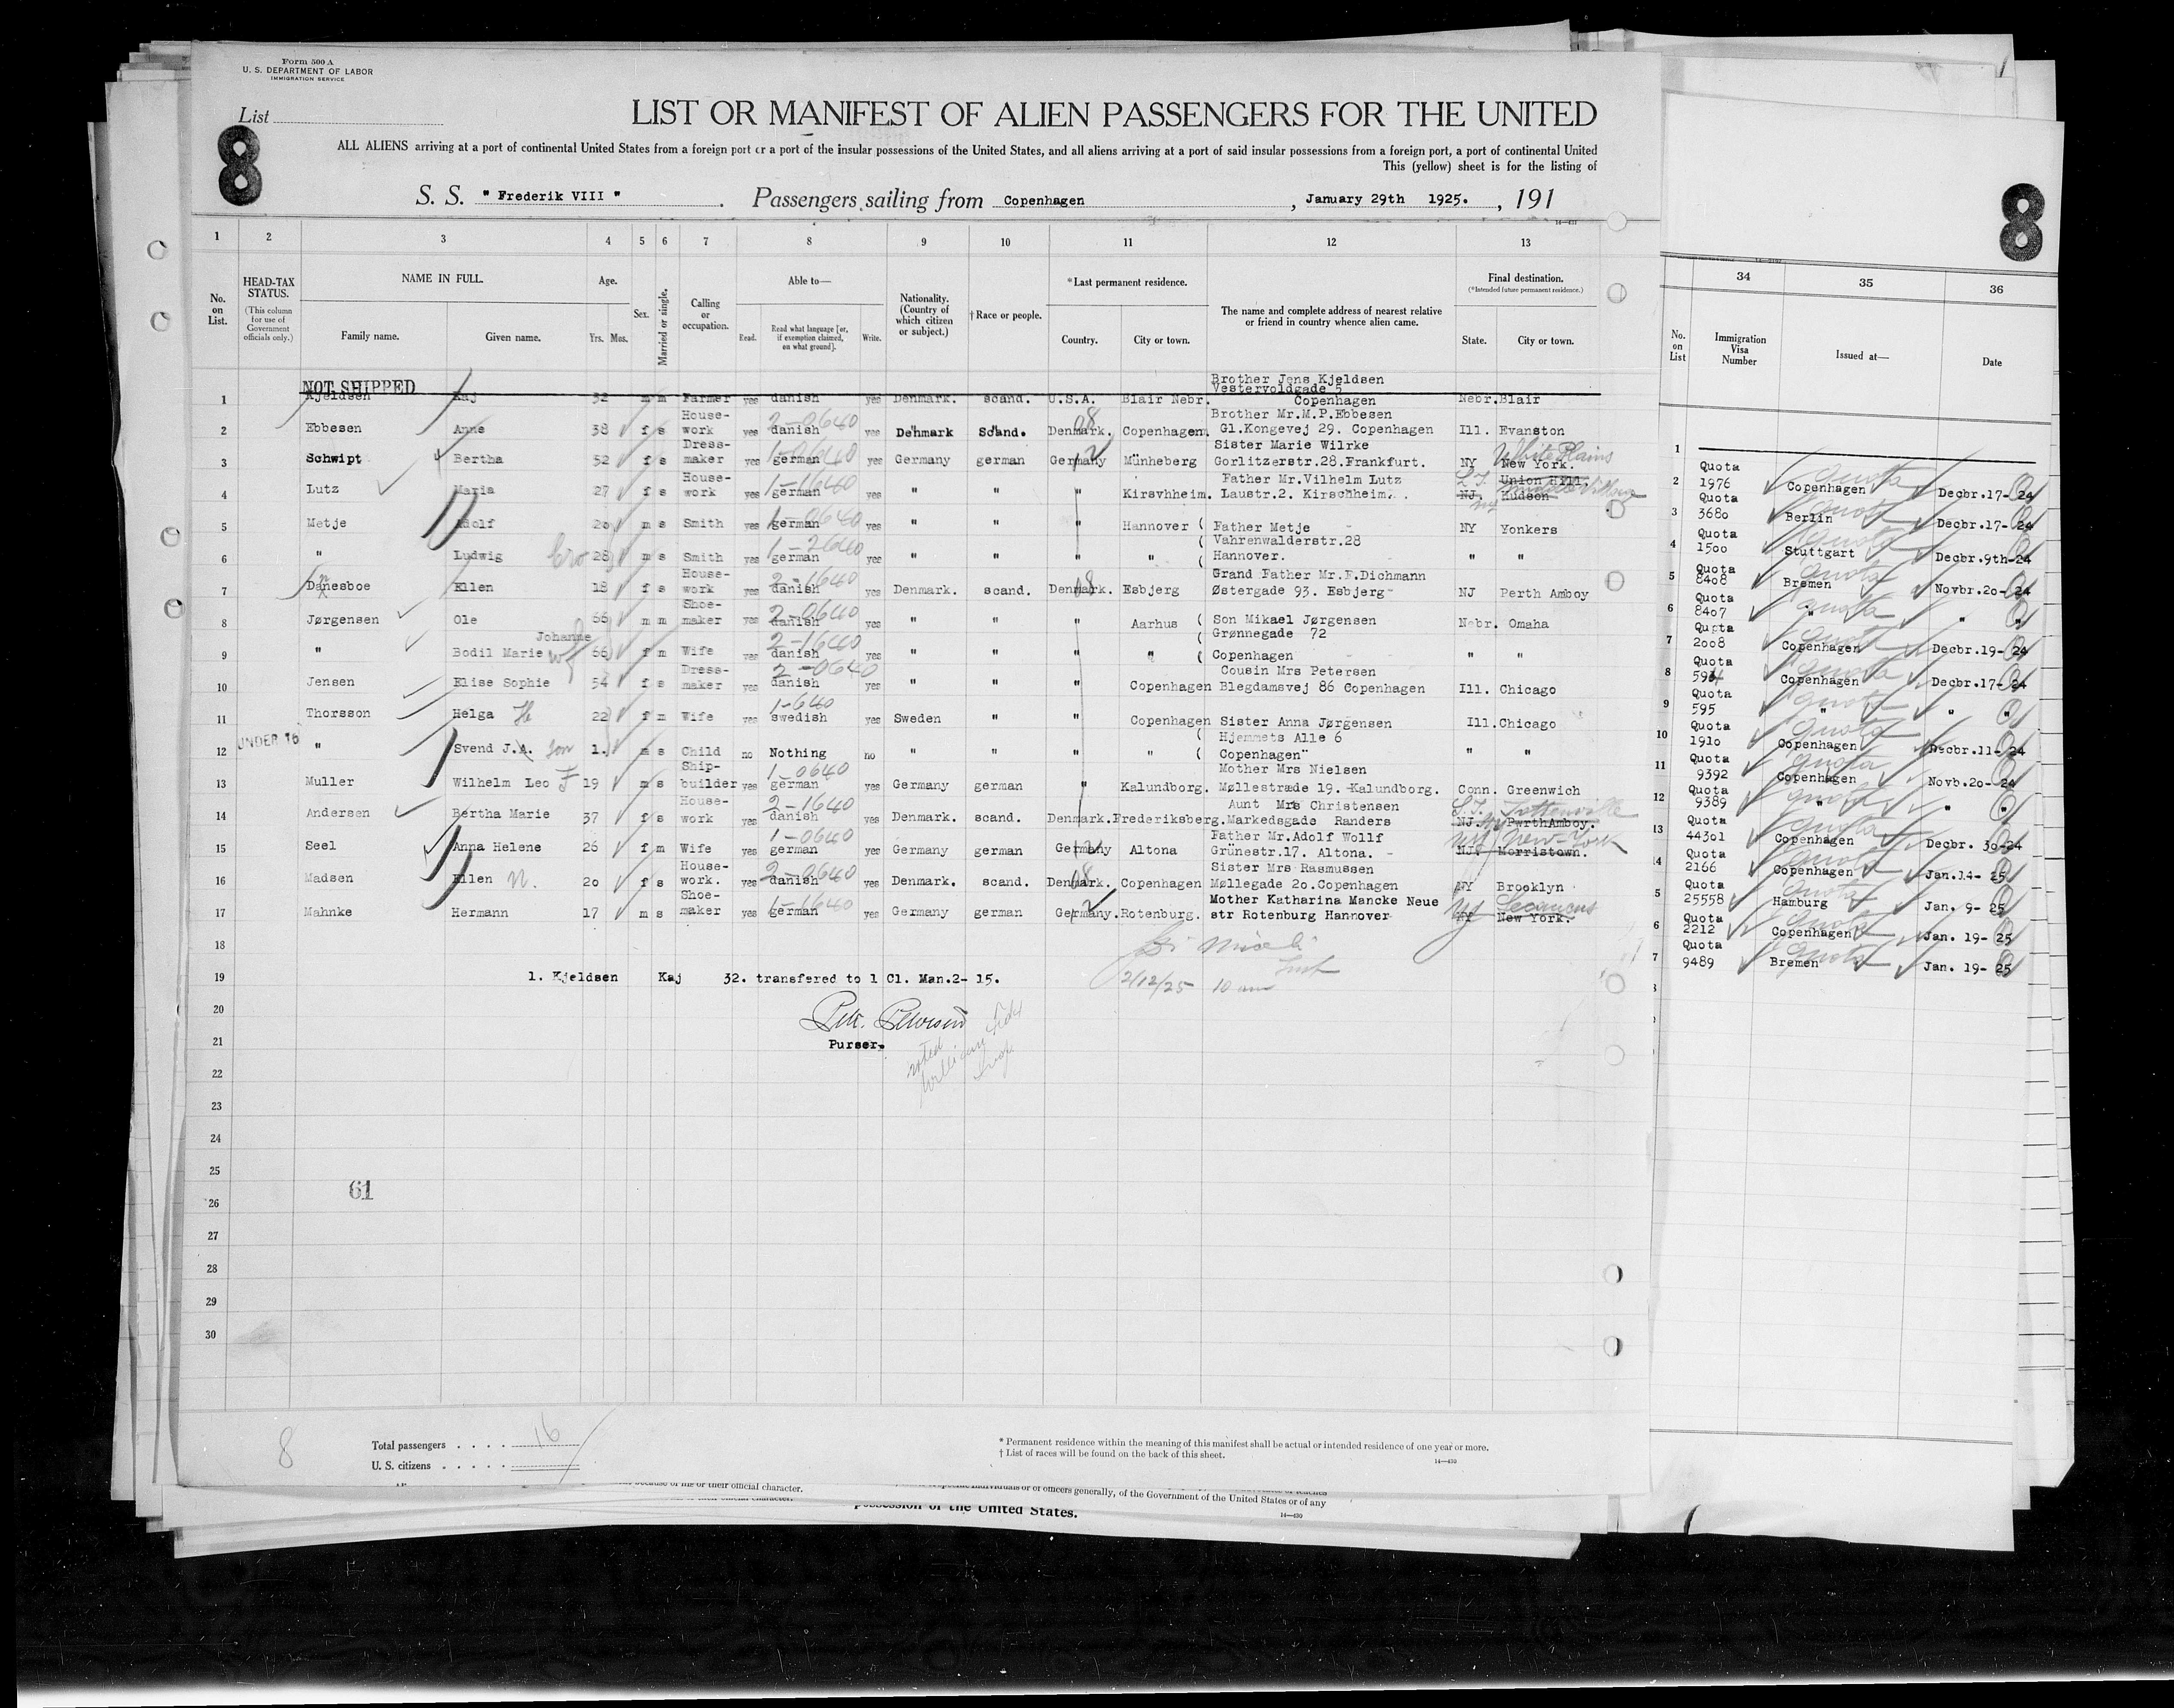 Form 500 A
U. S. DEPARTMENT OF LABOR
IMMIGRATION SERVICE
List
8
LIST OR MANIFEST OF ALIEN PASSENGERS FOR THE UNITED
ALL ALIENS arriving at a port of continental United States from a foreign port or a port of the insular possessions of the United States, and all aliens arriving at a port of said insular possessions from a foreign port, a port of continental United
This (yellow) sheet is for the listing of
S. S. " Frederik VIII " . Passengers sailing from Copenhagen , January 29th 1925. , 191
14—430
1 2 3 4 5 6 7 8 9 10 11 12 13
No. on List.
HEAD-TAX STATUS.
(This column for use of Government officials only.)
NAME IN FULL.
Family name. Given name.
Age.
Yrs. Mos.
Sex.
Married or single.
Calling or occupation.
Able to—
Read. Read what language [or, if exemption claimed, on what ground]. Write.
Nationality. (Country of which citizen or subject.)
† Race or people.
* Last permanent residence.
Country. City or town.
The name and complete address of nearest relative or friend in country whence alien came.
Final destination.
(*Intended future permanent residence.)
State. City or town.
NOT SHIPPED
1 Kjeldsen Kaj 32 m m Farmer yes danish yes Denmark. scand. U.S.A. Blair Nebr. Brother Jens Kjeldsen Vestervoldgade 5 Copenhagen Nebr. Blair
2 Ebbesen Anne 38 f s House-work yes danish 2-0640 yes Denmark Scand. Denmark. 08 Copenhagen. Brother Mr.M.P.Ebbesen Gl.Kongevej 29. Copenhagen Ill. Evanston
3 Schwipt Bertha 52 f s Dress-maker yes german yes Germany german Germany 12 Münheberg Sister Marie Wilrke Gorlitzerstr.28.Frankfurt. NY New York. White Plains
4 Lutz Maria 27 f s House-work yes german 1-1640 yes " " " Kirsvhheim. Father Mr.Vilhelm Lutz Laustr.2. Kirschheim. NJ. Union Hill. Hudson
5 Metje Adolf 26 m s Smith yes german 1-0640 yes " " " Hannover ( Father Metje NY Yonkers
6 " Ludwig bro 28 m s Smith yes german 1-2640 yes " " " " ( Vahrenwalderstr.28 Hannover. " "
7 Danesboe Ellen 18 f s House-work yes danish 2-1640 yes Denmark. scand. Denmark. 08 Esbjerg Grand Father Mr.F.Dichmann Østergade 93. Esbjerg NJ Perth Amboy
8 Jørgensen Ole 66 m m Shoe-maker yes danish 2-0640 yes " " " Aarhus ( Son Mikael Jørgensen Nebr. Omaha
9 " Bodil Marie Johanne wf 66 f m Wife yes danish 2-1640 yes " " " " ( Grønnegade 72 Copenhagen " "
10 Jensen Elise Sophie 54 f s Dress-maker yes danish 2-0640 yes " " " Copenhagen Cousin Mrs Petersen Blegdamsvej 86 Copenhagen Ill. Chicago
11 Thorsson Helga H 22 f m Wife yes swedish 1-640 yes Sweden " " Copenhagen Sister Anna Jørgensen Ill. Chicago
12 UNDER 16 " Svend J.A. son 1. m s Child no Nothing no " " " " ( Hjemmets Alle 6 Copenhagen" " "
13 Muller Wilhelm Leo F 19 m s Ship-builder yes german 1-0640 yes Germany german " Kalundborg. Mother Mrs Nielsen Møllestræde 19. Kalundborg. Conn. Greenwich
14 Andersen Bertha Marie 37 f s House-work yes danish 2-1640 yes Denmark. scand. Denmark. Frederiksberg. Aunt Mrs Christensen Markedsgade Randers NJ. PerthAmboy. S.I. Ny Tottenville
15 Seel Anna Helene 26 f m Wife yes german 1-0640 yes Germany german Germany 12 Altona Father Mr.Adolf Wollf Grünestr.17. Altona. NJ. Morristown. Ny New-York
16 Madsen Ellen N. 20 f s House-work. yes danish 2-0640 yes Denmark. scand. Denmark. 08 Copenhagen Sister Mrs Rasmussen Møllegade 2o.Copenhagen NY Brooklyn
17 Mahnke Hermann 17 m s Shoe-maker yes german 1-1640 yes Germany german Germany. 12 Rotenburg. Mother Katharina Mancke Neue str Rotenburg Hannover NY New York. NJ Secaucus
18
19 1. Kjeldsen Kaj 32. transfered to 1 Cl. Man.2- 15. 2/12/25 10 am
20
21 Purser.
22
23
24
25
61
26
27
28
29
30
8
Total passengers . . . . 16
U. S. citizens . . . . .
* Permanent residence within the meaning of this manifest shall be actual or intended residence of one year or more.
† List of races will be found on the back of this sheet.
14—430
because of his or their official character.
individuals or of officers generally, of the Government of the United States or of any
possession of the United States.
14—430
8
34 35 36
No. on List Immigration Visa Number Issued at— Date
1
2 Quota 1976 Copenhagen Quota Decbr.17-24
3 Quota 368o Berlin Quota Decbr.17-24
4 Quota 15oo Stuttgart Quota Decbr.9th-24
5 Quota 84o8 Bremen Quota Novbr.2o-24
6 Quota 84o7 " Quota " "
7 Quota 2oo8 Copenhagen Quota Decbr.19-24
8 Quota 594 Copenhagen Quota Decbr.17-24
9 Quota 595 " Quota " "
10 Quota 191o Copenhagen Quota Decbr.11-24
11 Quota 9392 Copenhagen Quota Novb.2o-24
12 Quota 9389 " Quota " "
13 Quota 443o1 Copenhagen Quota Decbr. 3o-24
4 Quota 2166 Copenhagen Quota Jan.14- 25
5 Quota 25558 Hamburg Quota Jan. 9- 25
6 Quota 2212 Copenhagen Quota Jan. 19- 25
7 Quota 9489 Bremen Quota Jan. 19- 25